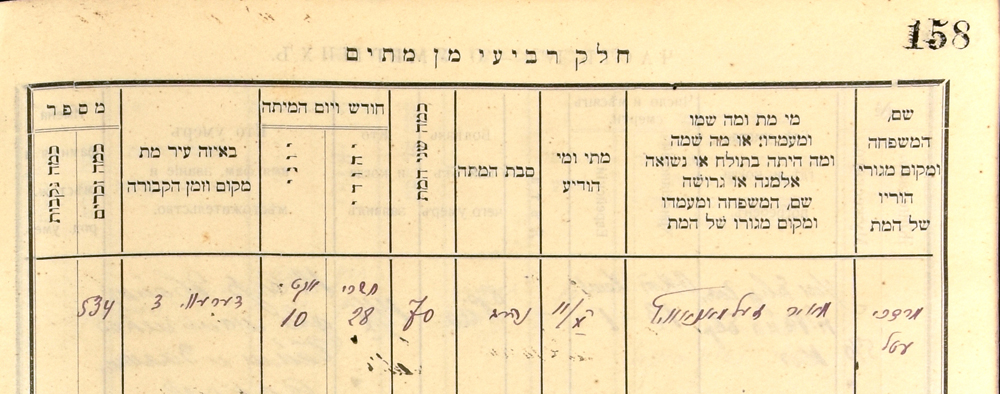 158
חלק רביעי מן מתים
שם, המשפחה ומקום מגורי הוריו של המת
מי מת ומה שמו ומעמדו; או מה שמה ומה היתה בתולה או נשואה אלמנה או גרושה שם, המשפחה ומעמדו ומקום מגורו של המת
מתי ומי הודיע
סבת המתה
כמה שני המת
חודש ויום המיתה
יהודי
יוני
באיזה עיר מת מקום וזמן הקבורה
מספר
כמה זכרים
כמה נקבות
מרדכי
עטל
נהרג
70
תשרי
28
10
534